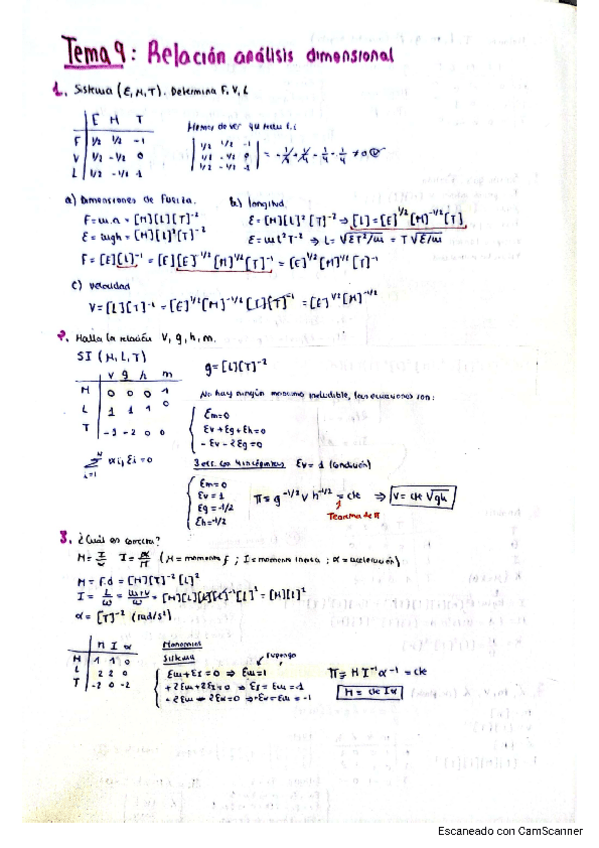 Tema 9: Relación análisis dimensional
1. Sistema (E, M, T). Determina F, V, L
E M T
F 1/2 1/2 -1
V 1/2 -1/2 0
L 1/2 -1/2 1
Hemos de ver
| 1/2 1/2 -1 |
| 1/2 -1/2 0 | = -1/4 + 1/4 - 1/4 - 1/4 ≠ 0
| 1/2 -1/2 1 |
a) Dimensiones de fuerza.
F = m.a = [M][L][T]⁻²
E = mgh = [M][L]²[T]⁻²
F = [E][L]⁻¹ = [E][E]⁻¹/²[M]¹/²[T]⁻¹ = [E]¹/²[M]¹/²[T]⁻¹
b) longitud.
E = [M][L]²[T]⁻² ⇒ [L] = [E]¹/²[M]⁻¹/²[T]
E = mL²T⁻² ⇒ L = √ET²/m = T√E/m
c) velocidad
V = [L][T]⁻¹ = [E]¹/²[M]⁻¹/²[T][T]⁻¹ = [E]¹/²[M]⁻¹/²
2. Halla la relación V, g, h, m.
SI (M, L, T)
g = [L][T]⁻²
v g h m
M 0 0 0 1
L 1 1 1 0
T -1 -2 0 0
No hay ningún monomio ineludible, las ecuaciones son:
Em = 0
Ev + Eg + Eh = 0
- Ev - 2Eg = 0
Σ αij Ei = 0
i=1
3 ecs. con 4 incógnitas Ev = 1 (condición)
Em = 0
Ev = 1
Eg = -1/2
Eh = -1/2
π = g⁻¹/² v h⁻¹/² = cte ⇒ V = cte √gh
Teorema de π
3. ¿Cuál es correcta?
M = I/α I = α/M (M = momento f ; I = momento inercia ; α = aceleración)
M = F.d = [M][T]⁻²[L]²
= [M][L]²
α = [T]⁻² (rad/s²)
M I α
M 1 1 0
L 2 2 0
T -2 0 -2
Monomios
Sistema
supongo
Em + EI = 0 ⇒ Em = 1
+ 2Em + 2EI = 0 ⇒ EI = -Em = -1
- 2Em - 2Eα = 0 ⇒ Eα = -Em = -1
π = M I⁻¹ α⁻¹ = cte
M = cte Iα
Escaneado con CamScanner